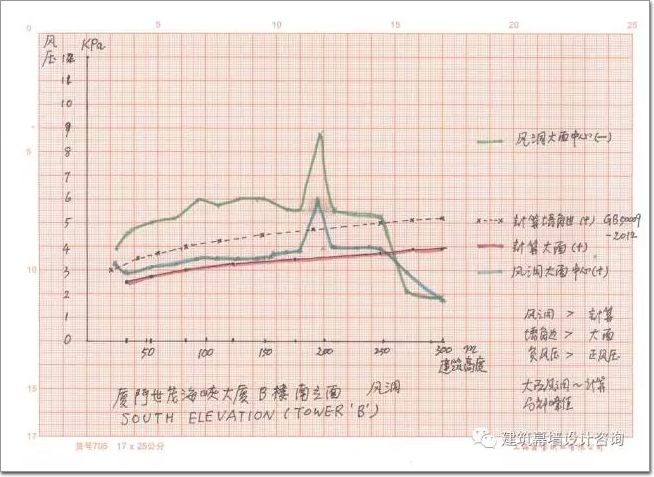 0 5 10 15 20 25
风压 KPa
12
11
10
9
8
7
6
5
4
3
2
1
0
5
10
15
17
50 100 150 200 250 300 m
建筑高度
风洞大面中心(一)
计算墙角边(+) GB50009-2012
计算大面(+)
风洞大面中心(+)
风洞 > 计算
墙角边 > 大面
负风压 > 正风压
大面风洞~计算
厦門世茂海峡大厦B楼南立面 风洞
SOUTH ELEVATION (TOWER 'B')
货号705 17 x 25公分
建筑幕墙设计咨询